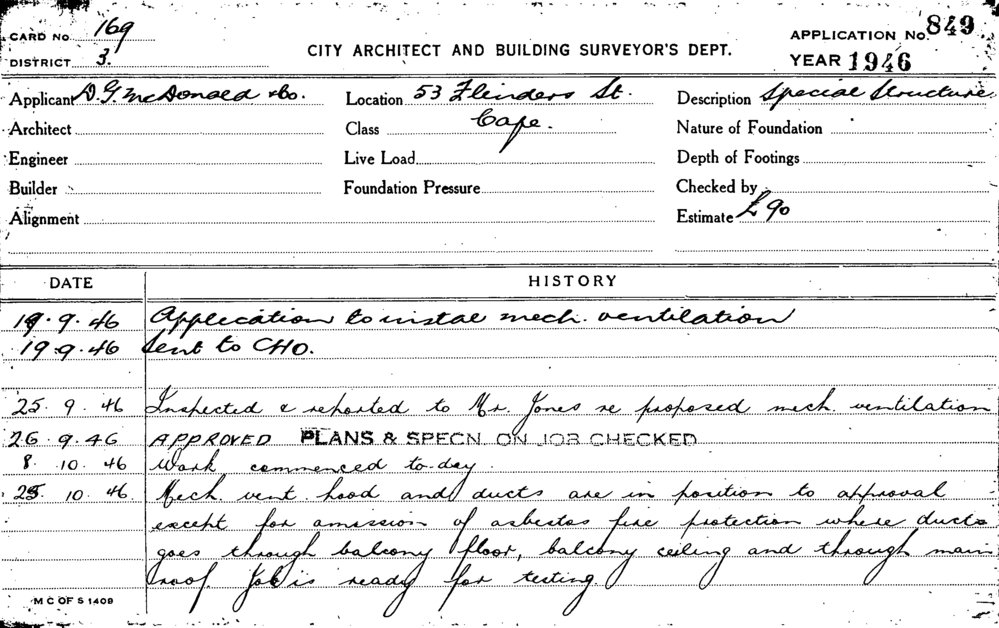 CARD No 169
DISTRICT 3.
CITY ARCHITECT AND BUILDING SURVEYOR'S DEPT.
APPLICATION No. 849
YEAR 1946
Applicant D. G. McDonald & Co. Location 53 Flinders St. Description Special Structure
Architect Class Cafe. Nature of Foundation
Engineer Live Load Depth of Footings
Builder Foundation Pressure Checked by
Alignment Estimate £90
DATE HISTORY
19.9.46 Application to instal mech. ventilation
19.9.46 Sent to CHO.
25.9.46 Inspected & reported to Mr. Jones re proposed mech. ventilation
26.9.46 APPROVED PLANS & SPECN. ON JOB CHECKED
8.10.46 Work commenced to-day.
25.10.46 Mech. vent hood and ducts are in position to approval
except for omission of asbestos fire protection where ducts
goes through balcony floor, balcony ceiling and through main
roof. Job is ready for testing
M C OF S 1409